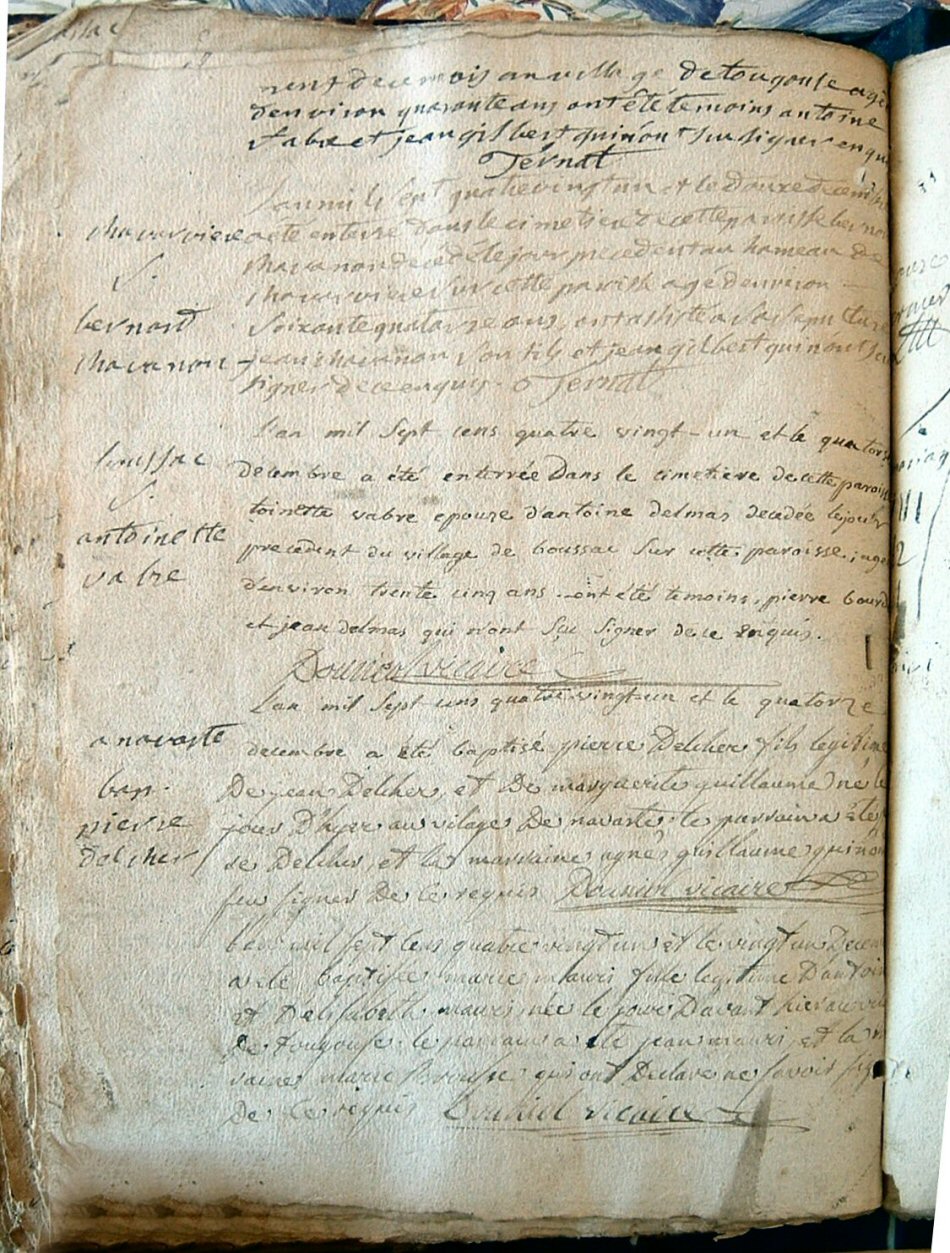 de ce mois au village de tougouse agé
d'environ quarante ans ont été temoins antoine
vabre et jean gilbert qui n'ont sçu signer enquis
Ternat
L'an mil sept cent quatre vingt un et le douze decembre
chavarviere
a été enterré dans le cimetiere de cette paroisse bernard
S.
chavanon decedé le jour precedent au hameau de
chavarviere sur cette paroisse agé d'environ
bernard
soixante quatorze ans, ont assisté a sa sepulture
chavanon
jean chavanon son fils et jean gilbert qui n'ont sçu
signer de ce enquis. Ternat
L'an mil sept cens quatre vingt-un et le quatorse
boussac
decembre a été enterrée dans le cimetière de cette paroisse
S.
toinette vabre epouze d'antoine delmas decedée le jour
antoinette
precedent du village de boussac sur cette paroisse, agée
vabre
d'environ trente cinq ans. ont été temoins, pierre
et jean delmas qui n'ont sçu signer de ce enquis.
Douniol vicaire
L'an mil sept cens quatre-vingt-un et le quatorze
anavaste
decembre a été baptisé pierre Delcher fils legitime
bap.
De jean Delcher, et De marguerite guillaume né le
pierre
jour D'hyer au vilage De navaste. le parrain a été
delcher
se Delcher, et la marraine agnes guillaume qui n'ont
sçu signer De ce requis Douniol vicaire
Lan mil sept cens quatre vingt un et le vingt un Decembre
a été baptisée marie mauris fille legitime D'antoine
et D'elisabeth mauris née le jour Davant hier au
De tougouse. le parrain a été jean mauris, et la
raine marie qui ont Declaré ne savoir
De ce requis Douniol vicaire